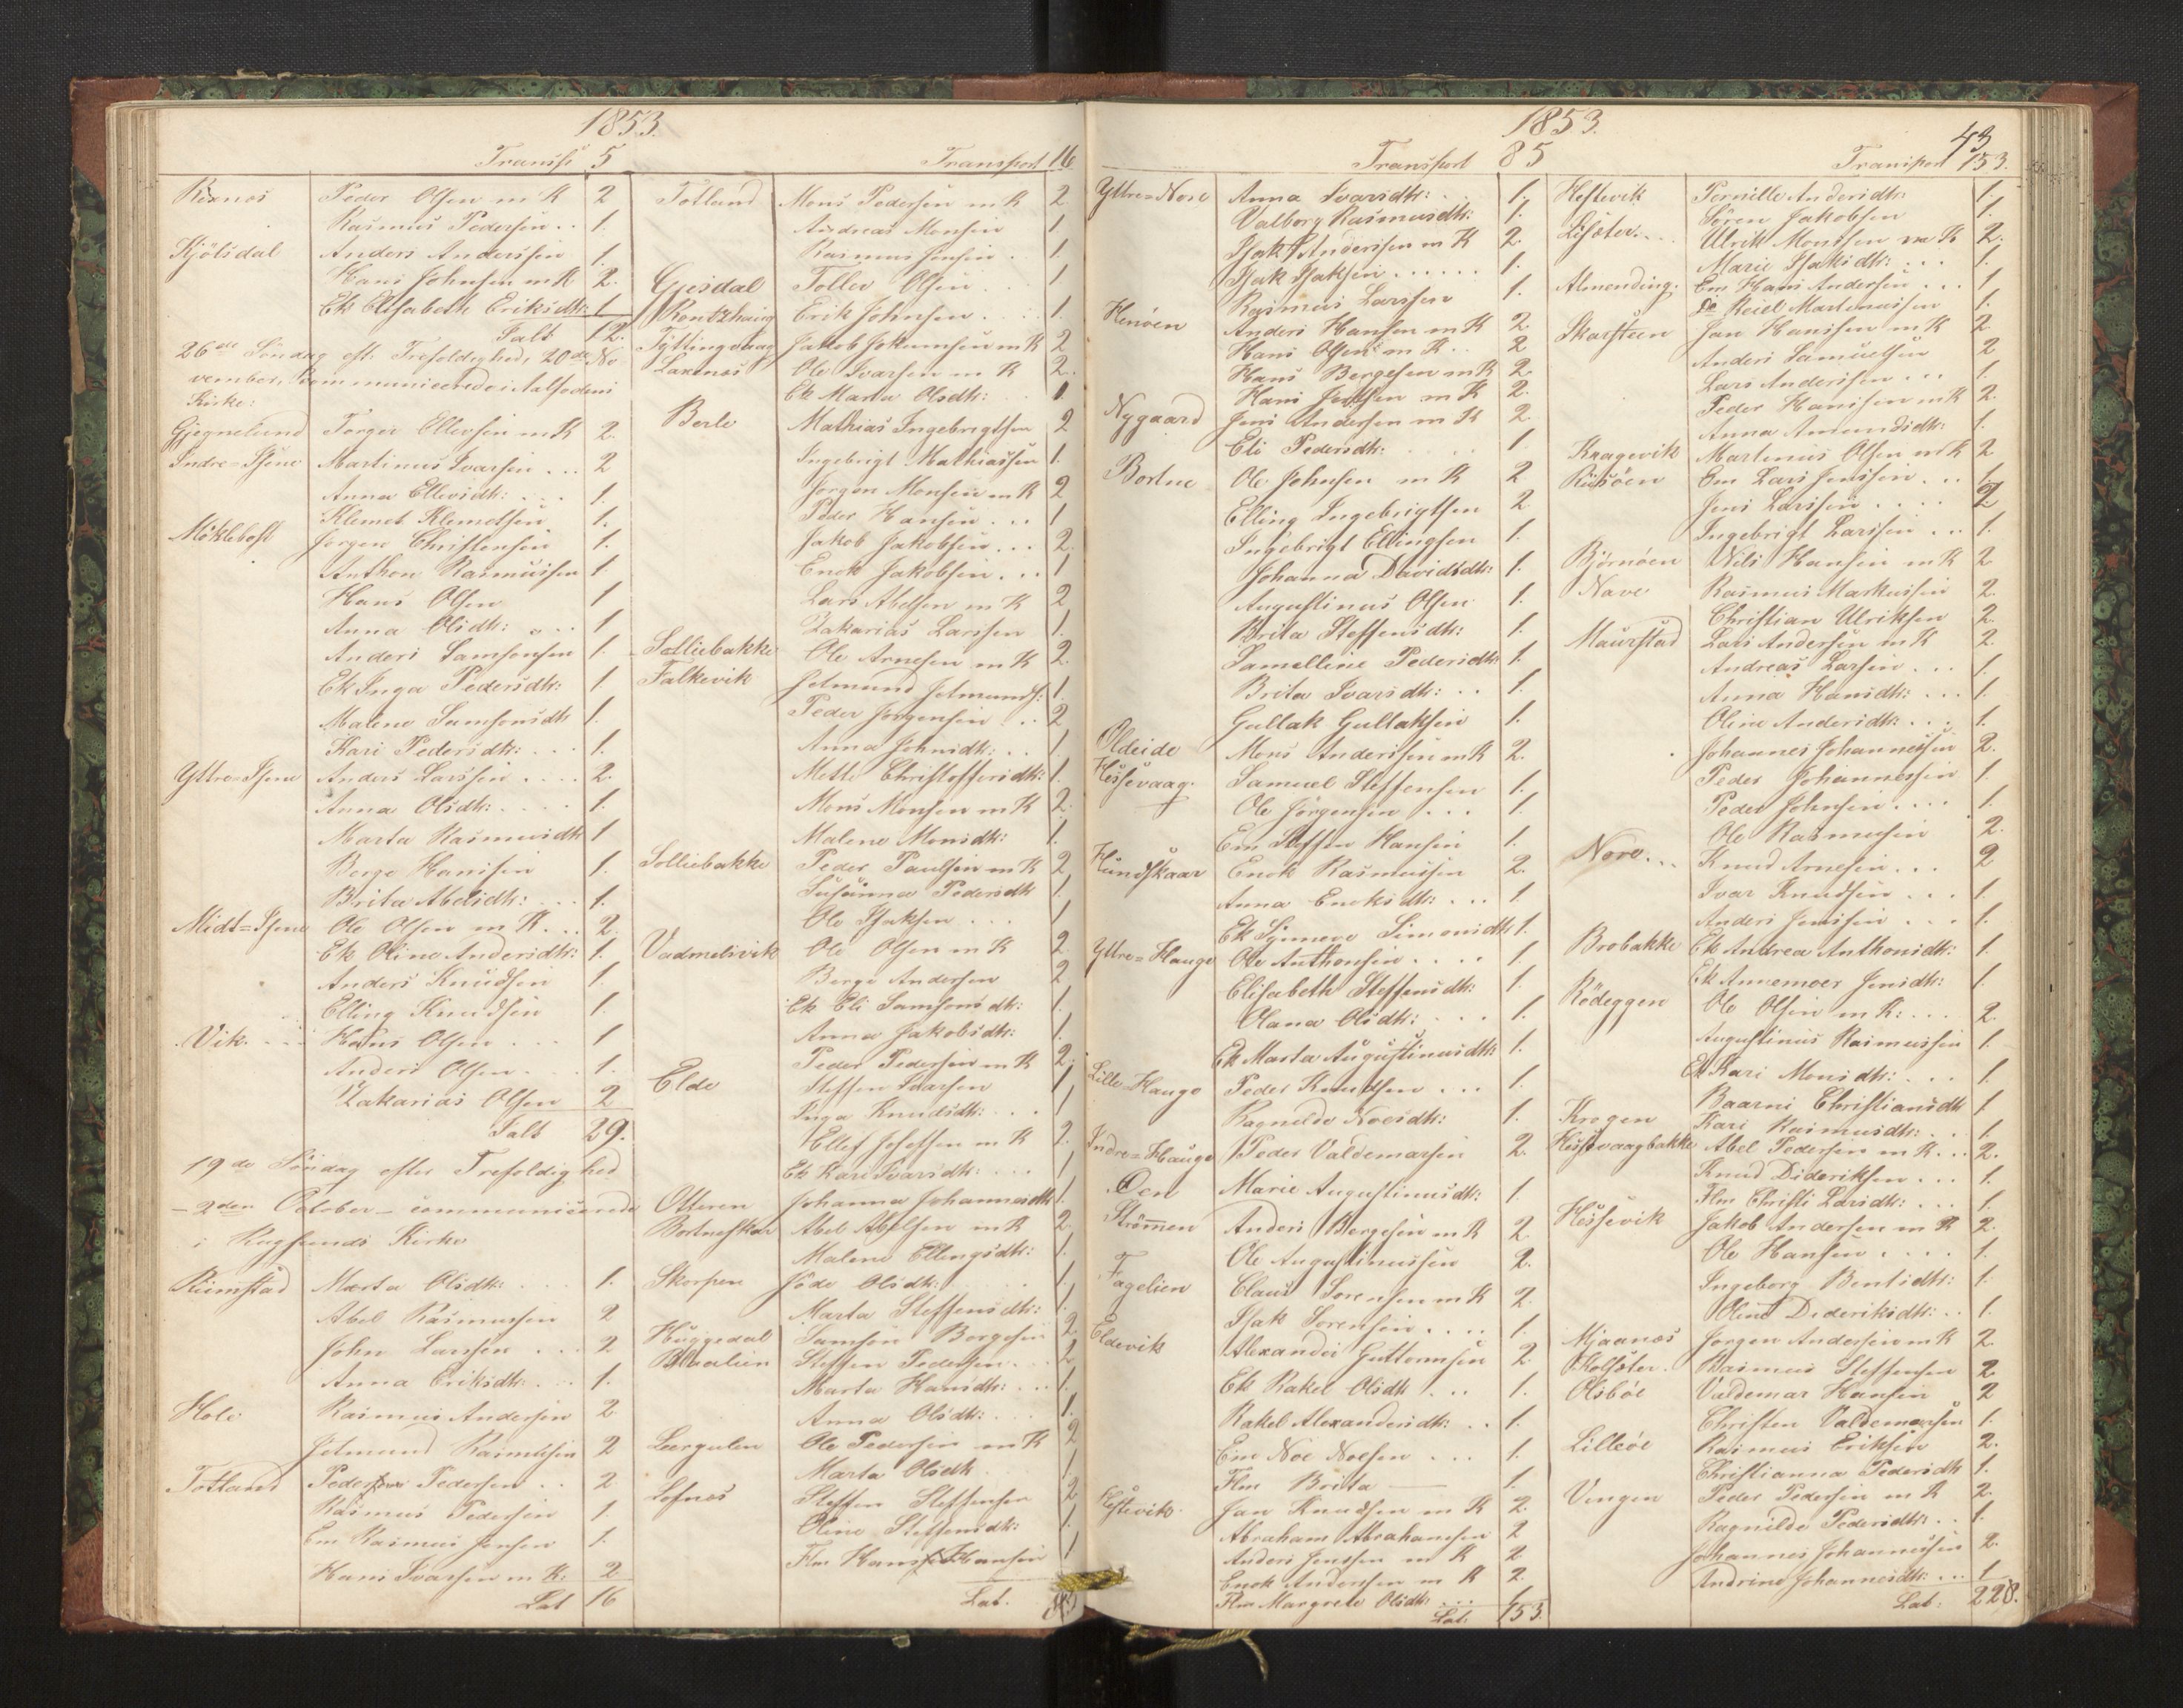 1853.
Transp 5
Rixnæs Peder Olsen m K 2
Rasmus Pedersen .. 1.
Kjölsdal Anders Anderssen 1.
Hans Johnsen m K 2.
Ek Elisabeth Eriksdtr: 1
Talt 12.
26de Söndag eft: Trefoldighed, 20de No-
vember, communicerede i Aalfodens
Kirke:
Gjegnelund Torger Ellevsen m K 2.
Indre=Isene Martinus Ivarsen ... 2
Anna Ellevsdtr: ... 1.
Klemet Klemetsen 1.
Möklebost Jorgen Christensen 1.
Anthon Rasmussen 1.
Hans Olsen 1
Anna Olsdtr: ... 1
Anders Samsonsen 1.
Ek Inga Pedersdtr: 1.
Malene Samsonsdtr 1.
Kari Pedersdtr: ... 1.
Yttre=Isene Anders Larssen .... 2.
Anna Olsdtr: .... 1.
Marta Rasmusdtr 1
Berge Hanssen 1.
Brita Abelsdtr: ... 1.
Midt=Isene Ole Olsen m K... 2.
Ek Oline Andersdtr: 1.
Anders Knudsen 1.
Elling Knudsen 1.
Vik... Hans Olsen ... 1
Anders Olsen ... 1.
Zakarias Olsen 2
Talt 29.
19de Söndag efter Trefoldighed
- 2den October - communicerede
i Rugsunds Kirke
Rimstad Marta Olsdtr: ... 1.
Abel Rasmussen 2
John Larssen ... 2
Anna Eriksdtr. .. 1.
Hole Rasmus Andersen 2.
Jetmund Rasmussen 2
Totland Peder Pedersen .. 2
Rasmus Pedersen 1.
Em Rasmus Jensen 1.
Hans Ivarsen m K: 2
Lat 16
Transport 16
Totland Mons Pedersen m K 2.
Andreas Monsen 1
Rasmus Jensen . 1
Gjesdal Tollev Olsen ... 1
Erik Johnsen . 1.
Tyttingvaag Jakob Jokumsen m K 2
Laxenæs Ole Ivarsen m K 2.
Ek Marta Olsdtr: .. 1.
Berle Mathias Ingebrigtsen 2
Ingebrigt Mathiassen 1.
Jorgen Monsen m K 2
Peder Hansen ... 1
Jakob Jakobsen ... 2.
Enok Jakobsen ... 1
Lars Abelsen m K 2
Zakarias Larssen 1.
Solliebakke Ole Arnesen m K 2.
Falkevik Jetmund Jetmunds: 1.
Peder Jorgensen .. 2
Anna Johnsdtr: .. 1.
Mette Christoffersdtr: 1.
Mons Monsen m K 2.
Malene Monsdtr: 1.
Solliebakke Peder Paulsen m K 2
Susanna Pedersdtr 1.
Ole Isaksen ... 1
Vadmelsvik Ole Olsen m K 2
Berge Andersen 2
Ek Eli Samsonsdtr: 1.
Anna Jakobsdtr: 1.
Peder Pedersen m K 2.
Elde Steffen Ivarsen 1
Inga Knudsdtr: ... 1
Ellef Josefsen m K 2.
Ek Kari Ivarsdtr: ... 1
Otteren Johanna Johannesdtr 1.
Bortneskar Abel Abelsen m K 2.
Malene Ellingsdtr: 1.
Skorpen Jöde Olsdtr: ... 1.
Marta Steffensdtr: 1.
Huggedal Samson Borgesen 2
Blaalien Steffen Pedersen... 2
Marta Hansdtr: ... 1.
Anna Olsdtr: ... 1.
Leergulen Ole Pedersen m K 2
Marta Olsdtr 1
Lofnæs Steffen Steffensen 2
Oline Steffensdtr: 1.
Flm Hans Hansen 1
Lat. 85
1853.
43
Transport 85
Yttre=Nore Anna Ivarsdtr: .. 1.
Valborg Rasmusdtr: 1.
Isak Anderssen m K 2.
Isak Isaksen ...... 1.
Rasmus Larssen 1.
Henöen Anders Hansen m K 2
Hans Olsen m K.. 2
Hans Bergesen m K 2.
Hans m K 2.
Nygaard Jens Andersen m K 2
Eli Pedersdtr: ... 1
Bortne Ole Johnsen m K 2
Elling Ingebrigtsen 2.
Ingebrigt Ellingsen 1.
Johanna Davidsdtr: 1.
Augustinus Olsen 1.
Brita Steffensdtr: 1.
Samelline Pedersdtr 1.
Brita Ivarsdtr: .. 1.
Gullak Gullaksen 1.
Oldeide Mons Anderssen m K 2.
Hessevaag. Samuel Steffensen 1.
Ole Jörgensen ... 1.
Em Steffen Hansen 1.
Hundskaar Enok Rasmussen 2.
Anna Enoksdtr: ... 1.
Ek Synneve Simonsdtr 1.
Yttre=Hauge Ole Anthonsen .... 1.
Elisabeth Steffensdtr: 1.
Olana Olsdtr: ... 1.
Ek Marta Augustinusdtr: 1.
Lille-Hauge Peder Knudsen ... 1.
Ragnilde Noesdtr: 1.
Indre=Hauge Peder Valdemarsen 2.
Öen Marie Augustinusdtr: 1.
Strömmen Anders Bergesen m K 2.
Ole Augustinussen 2.
Fagelien Claus Sorensen m K 2.
Isak Sorensen .... 1.
Eldevik Alexander Guttormsen 2
Ek Rakel Olsdtr ... 1.
Rakel Alexandersdtr: .. 1.
Em Noe Noesen ... 1.
Flm Brita — 1.
Hestevik. Jan Knudsen m K 2.
Abraham Abrahamsen 2
Anders Jenssen m K 2
Enok Anderssen m K 2.
Flm Margrete Olsdtr ... 1
Lat: 153.
Transport 153.
Heflevik Pernille Andersdtr: 1.
Sören Jakobsen 1.
Lisæter... Ulrik Monssen m K 2.
Marie Isaksdtr: ... 1.
Almending. Em Hans Andersen ... 1
do Reiel Martinussen 1.
Skarsteen Jan Hanssen m K 2
Anders Samuelsen 2
Lars Anderssen ... 1.
Peder Hanssen m K 2.
Anna Amundsdtr: 1.
Kragevik Martinus Olsen m K 2
Risöen Em Lars Jenssen ... 1.
Jens Larssen .... 2
Ingebrigt Larssen .. 1.
Björnöen Nils Hansen m K 2
Nave Rasmus Markussen 2.
Christian Ulriksen 2.
Maurstad Lars Andersen m K 2.
Andreas Larsen ... 1.
Anna Hansdtr: ... 1.
Oline Andersdtr: ... 1.
Johannes Johannessen 2.
Peder Johannessen 1.
Peder Johnsen .... 1.
Ole Rasmussen 2.
Nore... Knud Arnesen ... 2
Ivar Knudsen ... 1.
Anders Jenssen ... 1.
Brobakke Ek Andrea Anthonsdtr: 1.
Ek Annemoer Jensdtr: 1.
Rödeggen Ole Olsen m K: ... 2.
Augustinus Rasmussen 1.
Ek Kari Monsdtr: ... 1.
Baarni Christiansdtr 1.
Krogen Kari Rasmusdtr: ... 1.
Hessevaagbakke Abel Pedersen m K... 2.
Knud Dideriksen ... 1.
Flm Christi Larsdtr: ... 1.
Hessevik Jakob Andersen m K 2.
Ole Hansen .... 1.
Ingeborg Bentsdtr: 1.
Oline Dideriksdtr: .. 1.
Mjaanæs Jorgen Andersen m K 2.
Kolseter. Rasmus Steffensen 2
Olsböe Valdemar Hansen 2
Christen Valdemarsen 1.
Lilleöe Rasmus Eriksen 2.
Christianna Pedersdtr 1.
Vengen Peder Pedersen m K 2.
Ragnilde Pedersdtr: .. 1.
Johannes Johannessen 2.
Andrine Johannesdtr: ... 1
Lat: 228.